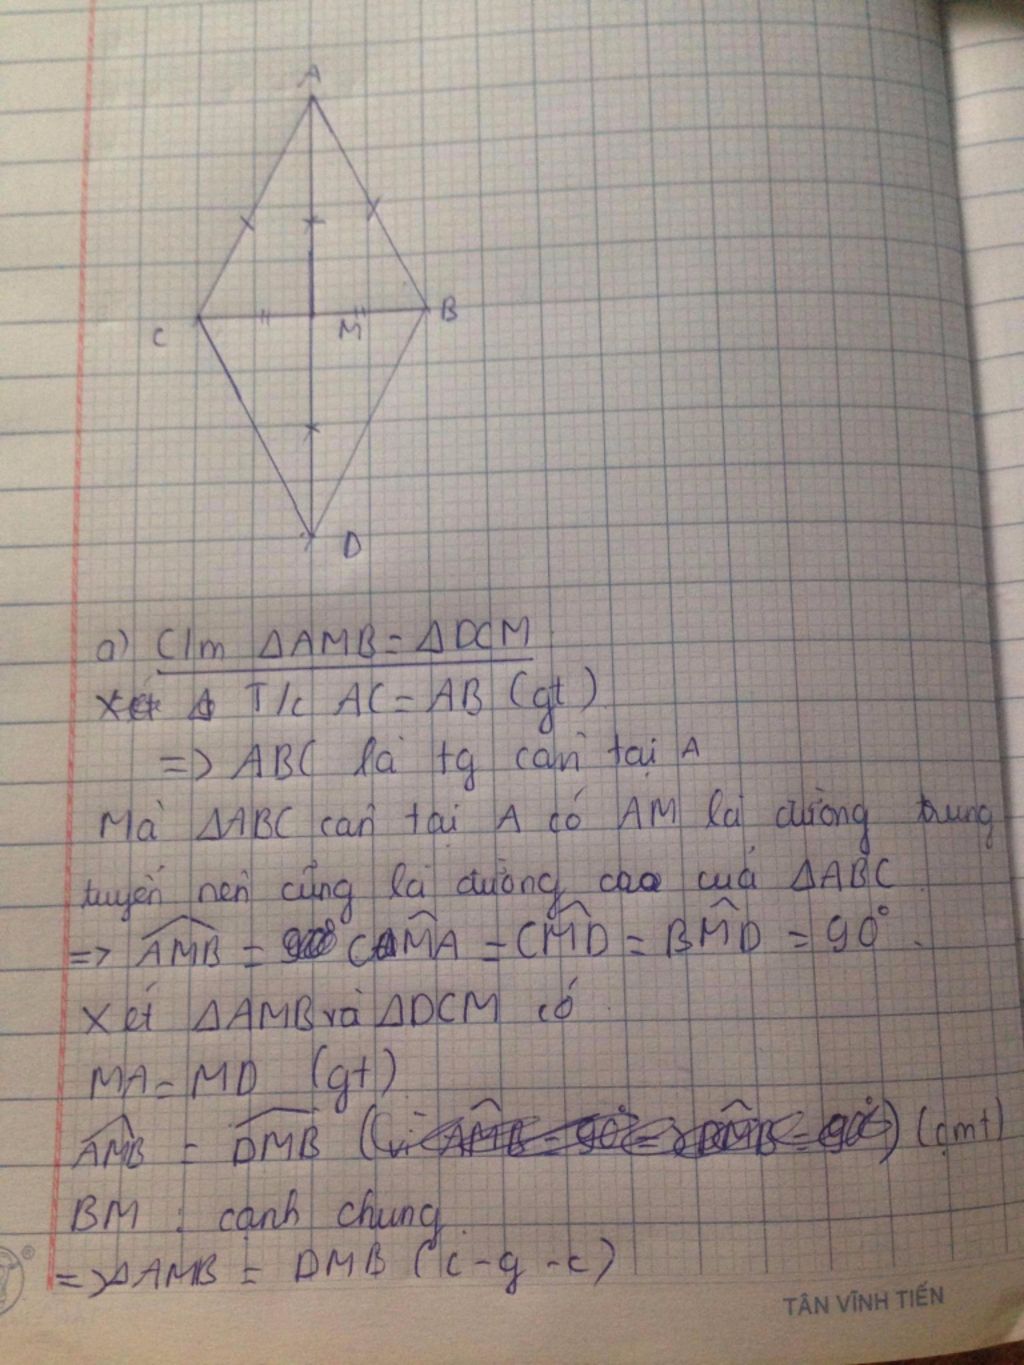 A
C
M
B
D
a) C/m ΔAMB = ΔDCM
Xét Δ T/c AC = AB (gt)
=> ABC là tg cân tại A
Mà ΔABC cân tại A có AM là đường trung
tuyến nên cũng là đường cao của ΔABC
=> AMB = CMA = CMD = BMD = 90°.
Xét ΔAMB và ΔDCM có
MA = MD (gt)
AMB = DMB (cmt)
BM : cạnh chung
=> ΔAMB = DMB (c-g-c)
TÂN VĨNH TIẾN